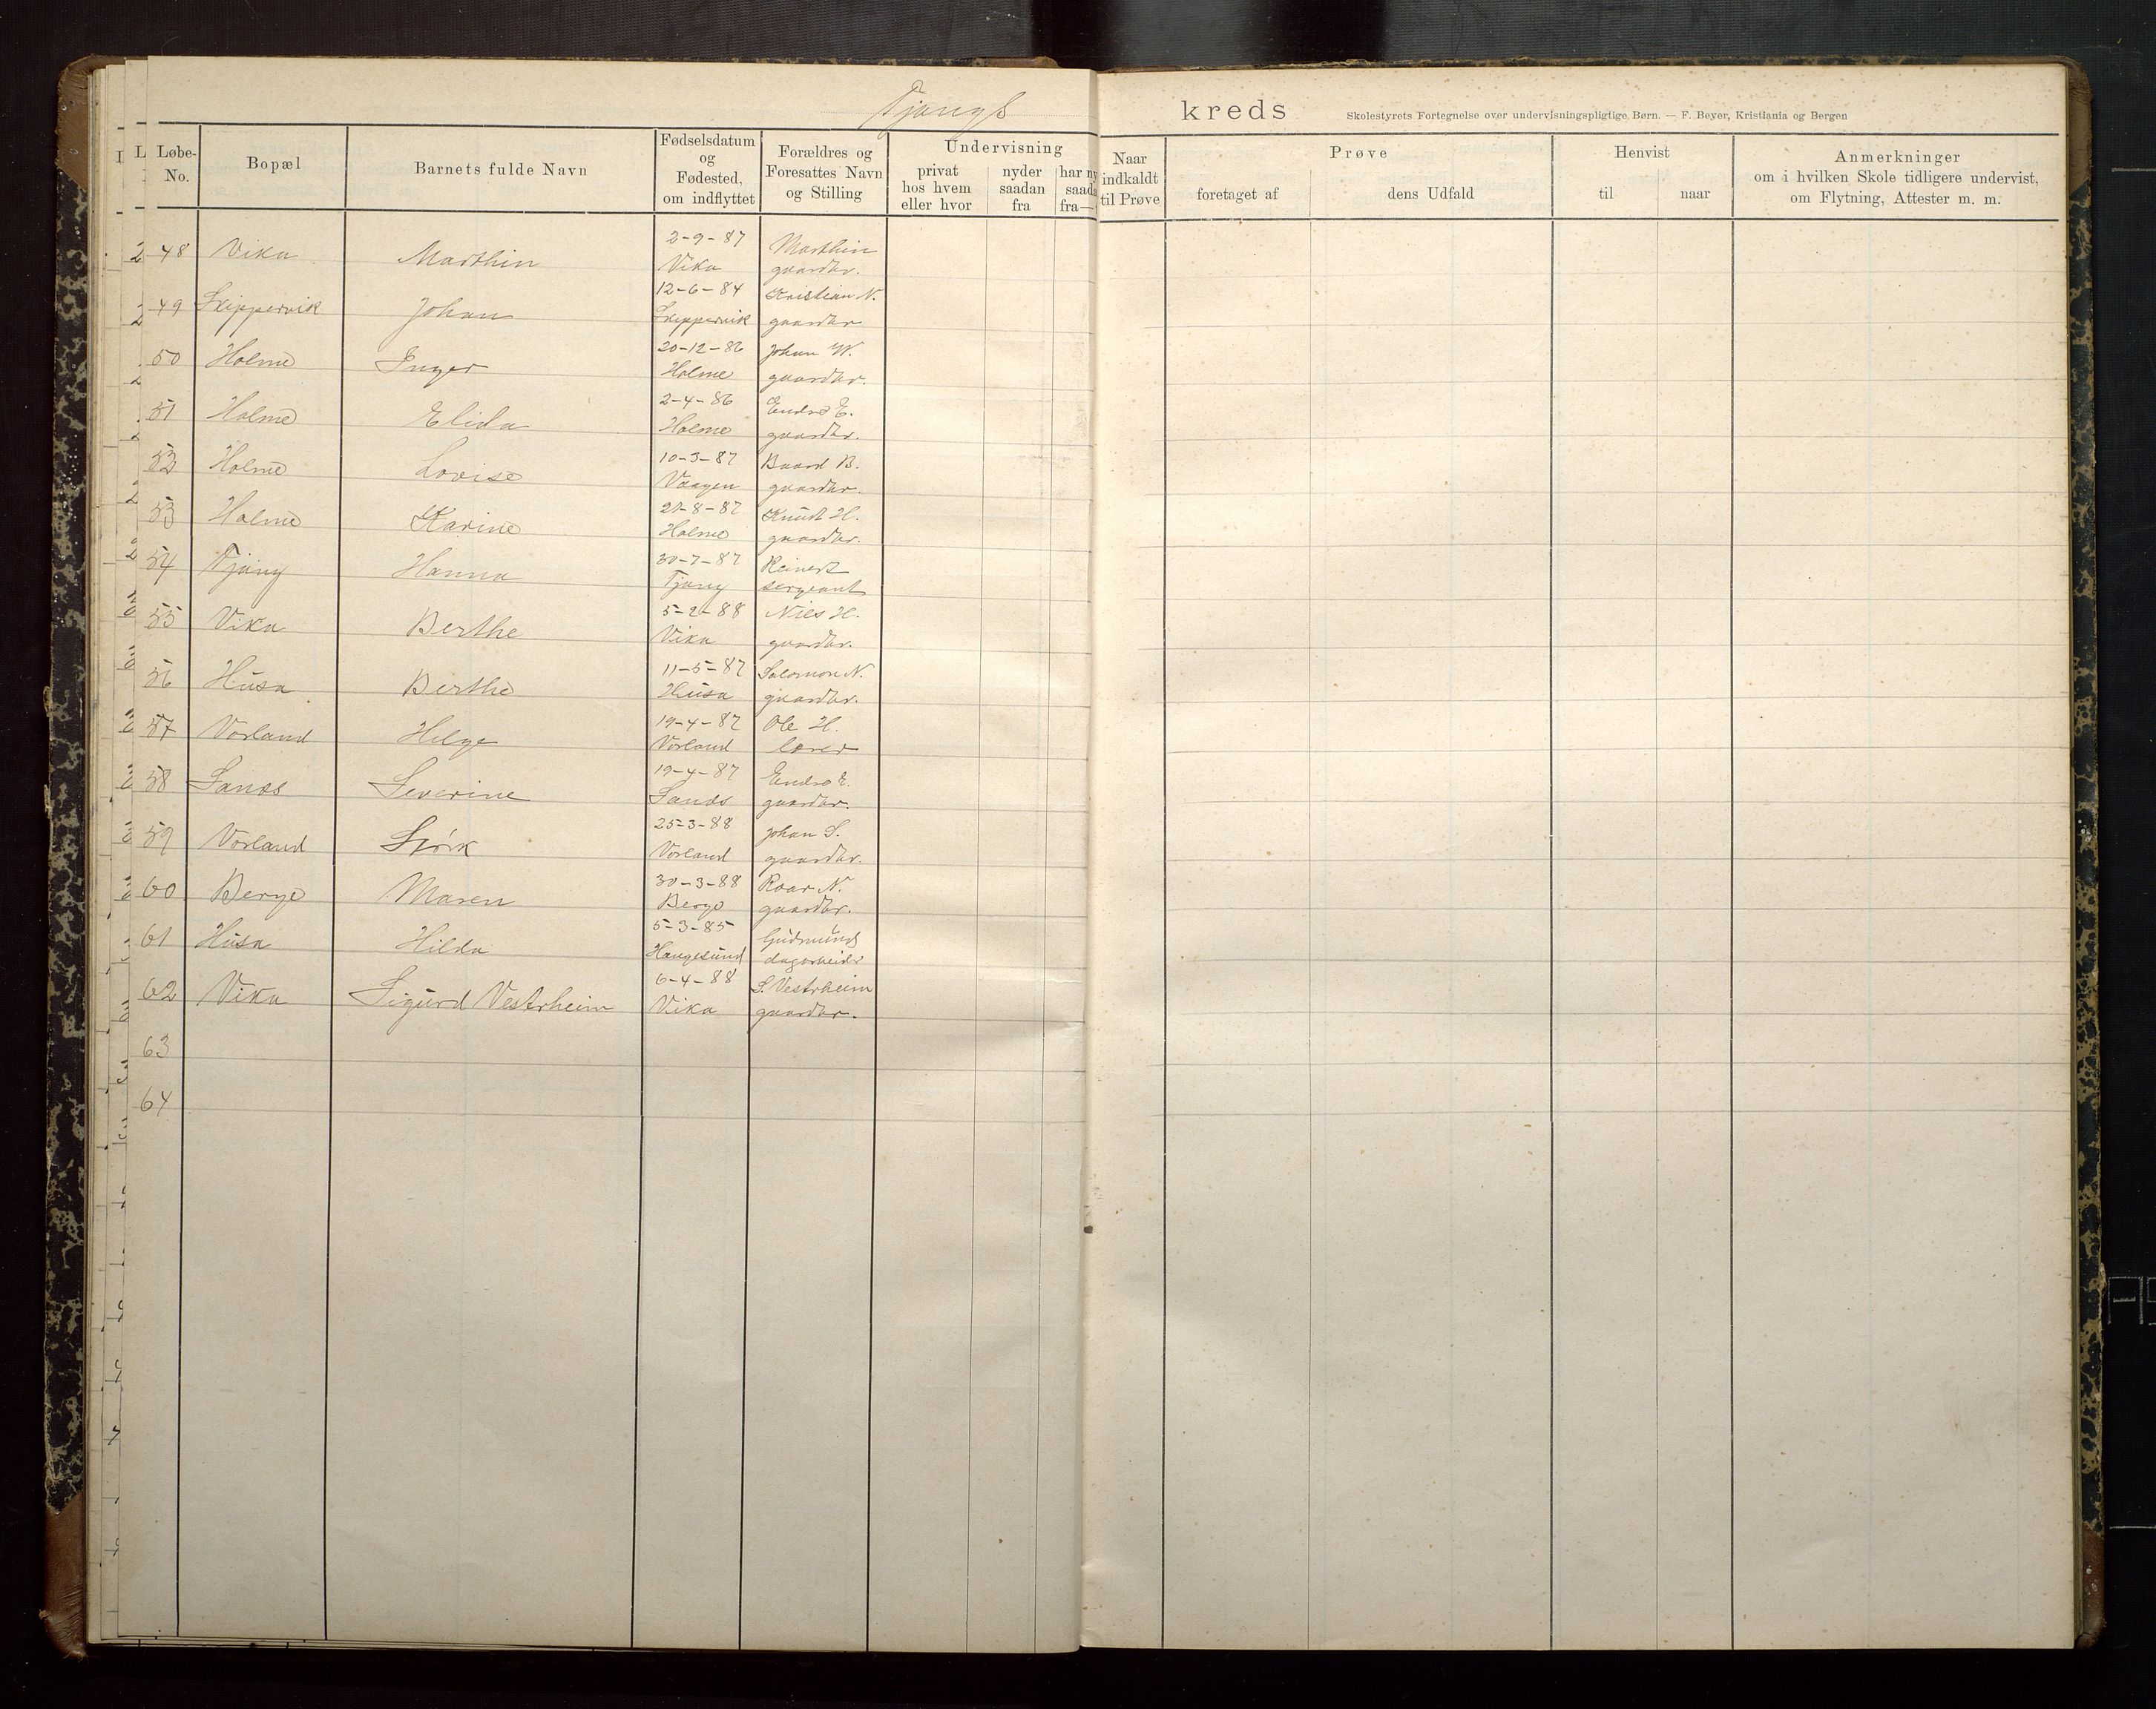 Tjongs kreds Skolestyrets Fortegnelse over undervisningspligtige Børn. — F. Beyer, Kristiania og Bergen
Løbe-No. Bopæl Barnets fulde Navn Fødselsdatum og Fødested, om indflyttet Forældres og Foresattes Navn og Stilling Undervisning privat hos hvem eller hvor nyder saadan fra har ny saada fra— Naar indkaldt til Prøve Prøve foretaget af dens Udfald Henvist til naar Anmerkninger om i hvilken Skole tidligere undervist, om Flytning, Attester m. m.
48 Vika Marthin 2-9-87 Vika Marthin gaardbr.
49 Skippervik Johan 12-6-84 Skippervik Kristian N. gaardbr
50 Holme Inger 20-12-86 Holme Johan W. gaardbr.
51 Holme Elida 2-4-86 Holme Endre E. gaardbr.
52 Holme Lovise 10-3-87 Vaagen Baard B. gaardbr.
53 Holme Karine 21-8-87 Holme Knudt H. gaardbr.
54 Tjong Hanna 30-7-87 Tjong Reinert sergeant
55 Vika Berthe 5-2-88 Vika Nils H. gaardbr.
56 Husa Berthe 11-5-87 Husa Salomon N. gaardbr.
57 Vorland Helge 19-4-87 Vorland Ole H. lærer
58 Sands Severine 19-4-87 Sands Endre E. gaardbr.
59 Vorland 25-3-88 Vorland Johan S. gaardbr.
60 Berge Maren 30-3-88 Berge Roar N. gaardbr.
61 Husa Hilda 5-3-85 Haugesund Gudmund dagarbeider
62 Vika Sigurd Vestrheim 6-4-88 Vika S. Vestrheim gaardbr.
63
64